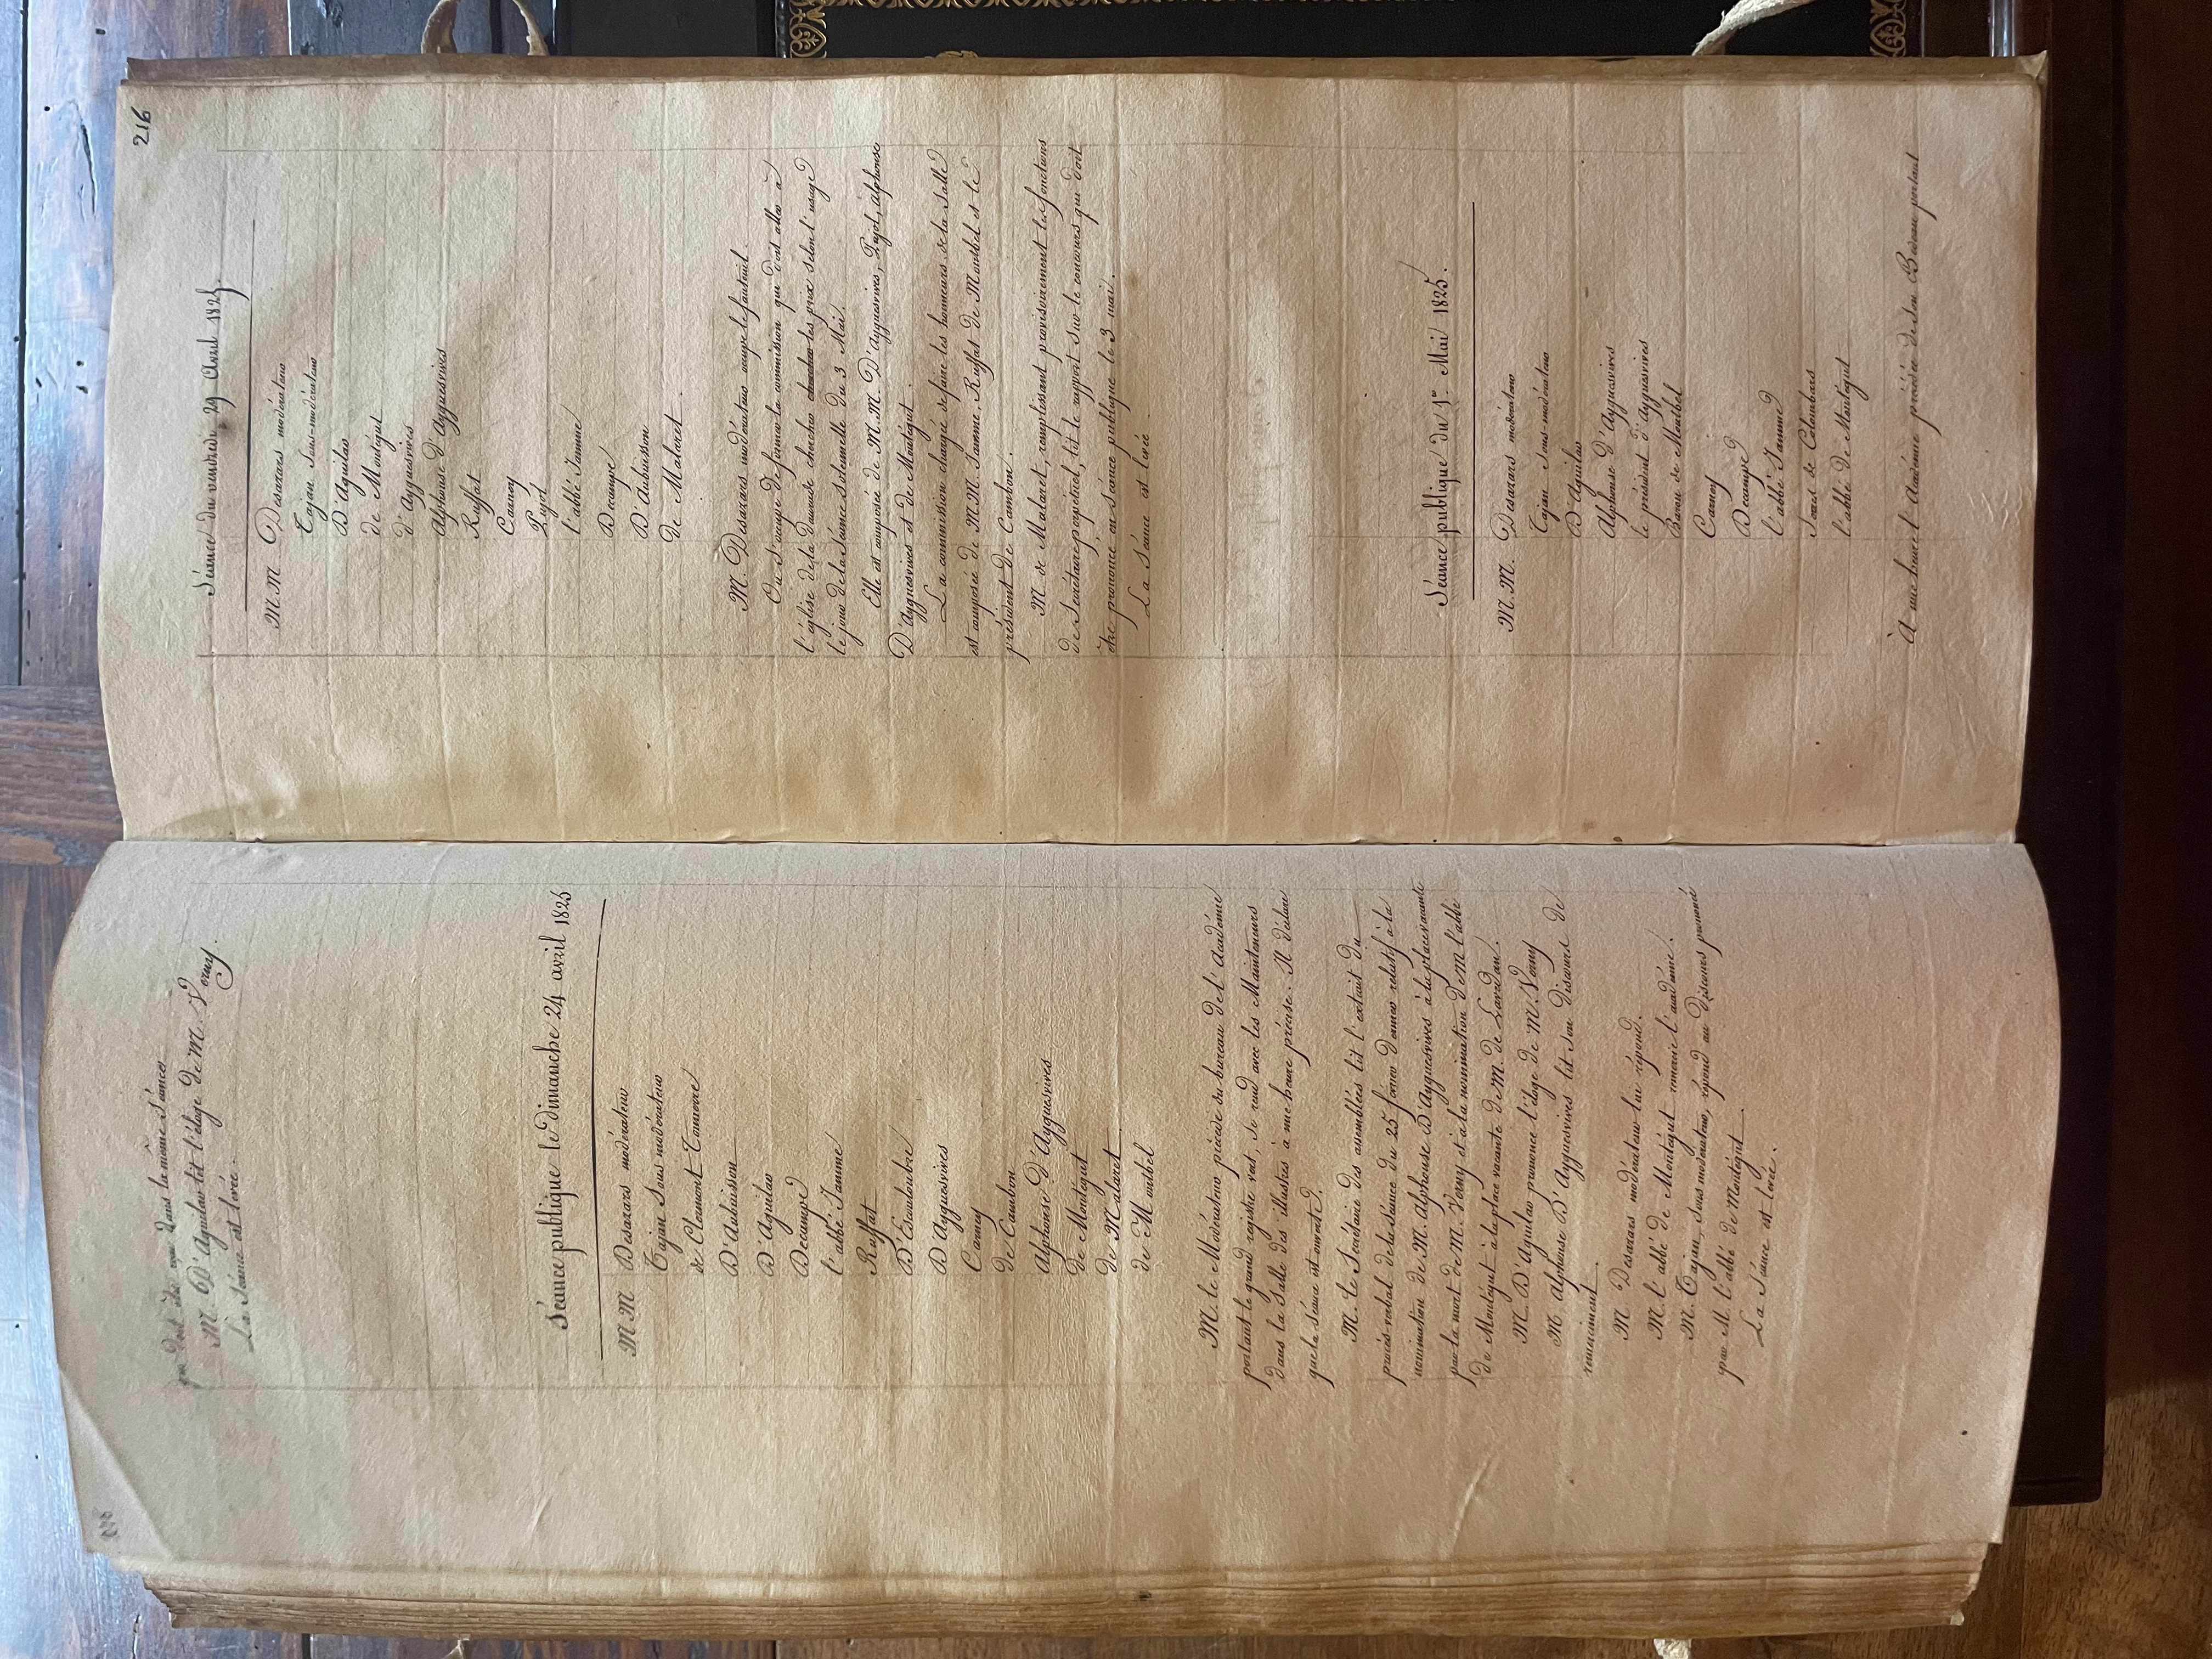 qui doit être reçu dans la même séance
M. D'Aguilar lit l'éloge de M. Verny.
La séance est levée.
Séance publique le Dimanche 24 avril 1825
M M Desazars modérateur
Tajan Sous modérateur
de Clermont-Tonnerre
D'Aubuisson
D'Aguilar
Decampe
l'abbé Jamme
Ruffat
D'Escouloubre
D'Ayguesvives
Carney
de Cambon
Alphonse D'Ayguesvives
de Montégut
de Malaret
de Montbel
M. le Modérateur précédé du bureau de l'Académie
portant le grand registre vert, se rend avec les Mainteneurs
dans la Salle des illustres à une heure précise. Il déclare
que la Séance est ouverte.
M. le Secrétaire des assemblées lit l'extrait du
procès-verbal de la Séance du 25 février dernier relatif à la
nomination de M. Alphonse D'Ayguesvives à la place vacante
par la mort de M. Verny et à la nomination de M l'abbé
de Montégut à la place vacante de M. de Lavedan.
M. D'Aguilar prononce l'éloge de M. Verny
M. Alphonse D'Ayguesvives lit son Discours de
remerciment.
M. Desazars modérateur lui répond.
M. l'abbé de Montégut remercie l'académie.
M. Tajan, sous modérateur, répond au Discours prononcé
par M. l'abbé de Montégut.
La Séance est levée.
216
Séance du vendredi 29 Avril 1825.
M. M. Desazars modérateur
Tajan Sous-modérateur
D'Aguilar
de Montégut
d'Ayguesvives
Alphonse d'Ayguesvives
Ruffat
Carney
Pujol
l'abbé Jamme
Decampe
D'Aubuisson
de Malaret.
M. Desazars modérateur occupe le fauteuil.
On s'occupe de former la commission qui doit aller à
l'église de la Daurade chercher chercher les prix selon l'usage
le jour de la Séance Solennelle du 3 Mai.
Elle est composée de M.M. D'ayguesvives, Pujol, alphonse
D'ayguesvives et de Montégut.
La commission chargée de faire les honneurs de la Salle
est composée de M M. Jamme, Ruffat de Montbel et le
président de Cambon.
M de Malaret, remplissant provisoirement les fonctions
de Secrétaire perpétuel, lit le rapport sur le concours qui doit
être prononcé en Séance publique le 3 mai.
La Séance est levée
Séance publique du 1er Mai 1825.
M. M. Desazars modérateur
Tajan Sous-modérateur
D'Aguilar
Alphonse d'Ayguesvives
le président d'Ayguesvives
Baron de Montbel
Carney
Decampe
l'abbé Jamme
Jouez de Colombars
l'abbé de Montégut
À une heure l'Académie précédée de son Bedeau portant